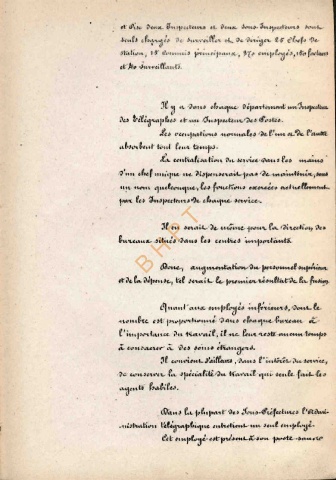 et Oise deux Inspecteurs et deux Sous-Inspecteurs sont
seuls chargés de surveiller et de diriger 25 Chefs de
station, 15 commis principaux, 370 employés, 150 facteurs
et 40 surveillants.
Il y a dans chaque département un Inspecteur
des Télégraphes et un Inspecteur des Postes.
Les occupations normales de l'un et de l'autre
absorbent tout leur temps.
La centralisation du service dans les mains
d'un chef unique ne dispenserait pas de maintenir, sous
un nom quelconque, les fonctions exercées actuellement
par les Inspecteurs de chaque service.
Il en serait de même pour la direction des
bureaux situés dans les centres importants.
Donc, augmentation du personnel supérieur
et de la dépense, tel serait le premier résultat de la fusion.
Quant aux employés inférieurs, dont le
nombre est proportionné dans chaque bureau à
l'importance du travail, il ne leur reste aucun temps
à consacrer à des soins étrangers.
Il convient d'ailleurs, dans l'intérêt du service,
de conserver la spécialité du travail qui seule fait les
agents habiles.
Dans la plupart des Sous-Préfectures l'Admi-
nistration télégraphique entretient un seul employé.
Cet employé est présent à son poste
BHPT